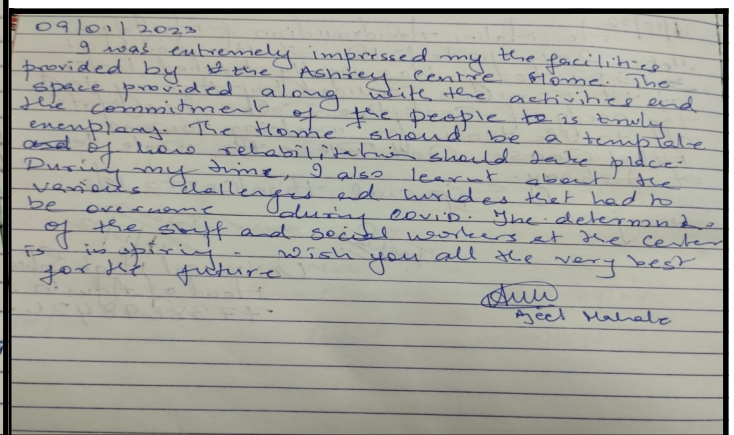 09/01/2023
I was extremely impressed my the facilities
provided by the Ashrey Centre Home. The
space provided along with the activities and
the commitment of the people to is truly
exemplary. The Home should be a template
and of how rehabilitation should take place.
During my time, I also learnt about the
various challenges ad hurldes thet had to
be overcome during covid. The determin
of the staff and social workers at the center
is inspiring. wish you all the very best
for the future
Ajeet